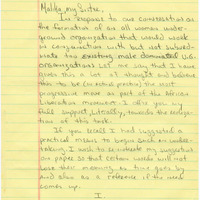 Malika, my Sister,
In response to our conversation on
the formation of an all women under-
ground organization that would work
in conjunction with but not subord-
inate to existing male dominated U.G.
organizations let me say that I have
given this a lot of thought and believe
this to be (in house practice) the most
progressive move on part of the African
Liberation movement. I offer you my
full support Literally, towards the realiza-
tion of this task.
If you recall I had suggested a
practical means to begin such an under-
taking. I wish to reiterate my suggestion
on paper so that certain words will not
lose their meaning as time goes by
and also as a reference if the need
comes up.
I.